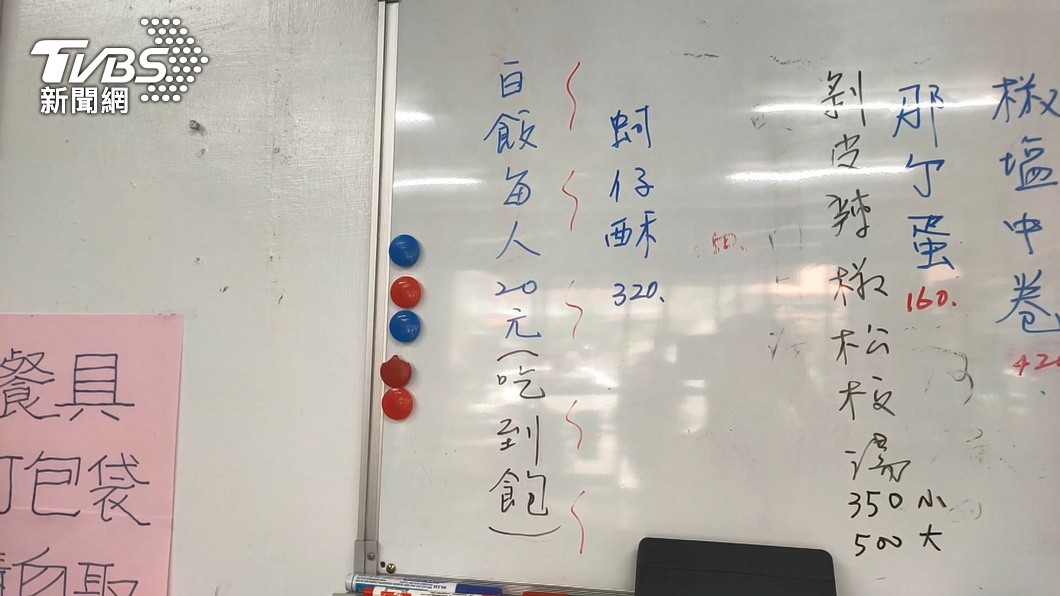 TVBS
新聞網
椒塩中卷
那蛋
160.
剝皮辣椒松板湯
350小
500大
蚵仔酥
320.
白飯每人20元(吃到飽)
餐具
包袋
自取